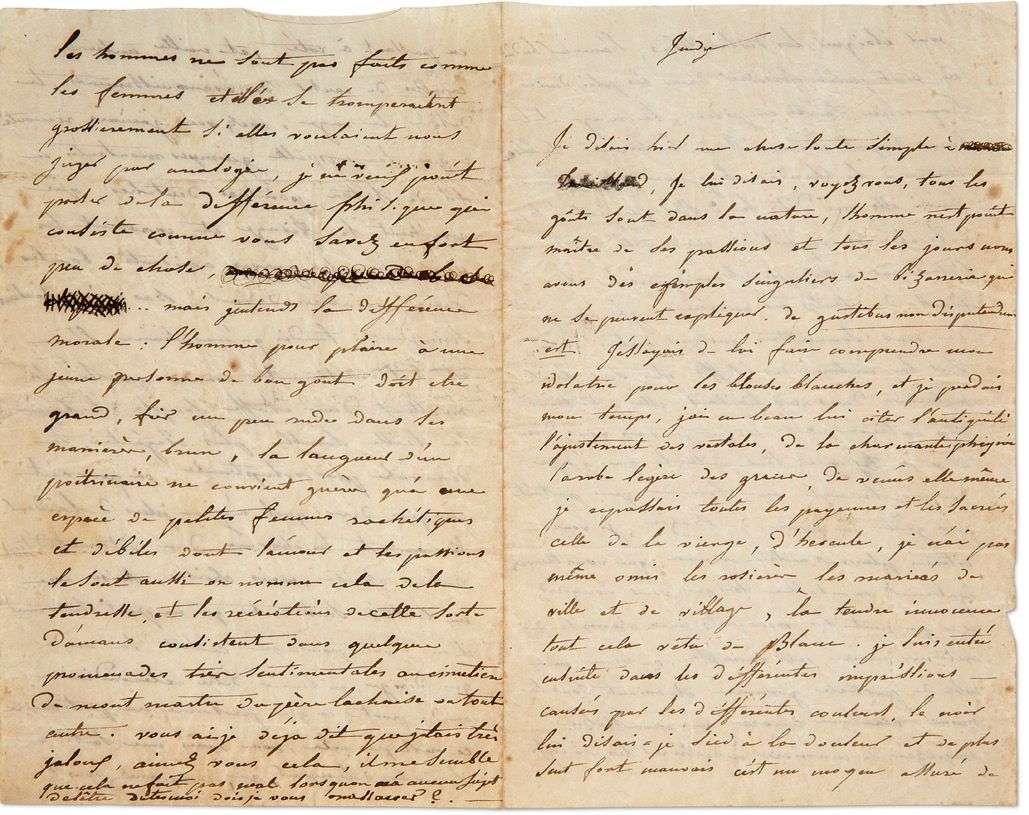 les hommes ne sont pas faits comme
les femmes et elles se tromperaient
grossierement si elles voulaient nous
juger par analogie, je ne veux point
parler de la différence phisique qui
consiste comme vous savez en fort
peu de chose,
... mais jentends la différence
morale : l'homme pour plaire à une
jeune personne de bon gout doit etre
grand, fier un peu rude dans ses
manières, brun, la langueur d'un
poitrinaire ne convient guere qu'à une
espèce de petites femmes rachétiques
et débiles dont lamour et les passions
le sont aussi on nomme cela de la
tendresse, et les récréations de cette sorte
d'amans consistent dans quelques
promenades très sentimentales au cimetière
de mont martre du père lachaise ou tout
autre. vous ai je déjà dit que j'etais très
jaloux, aimez vous cela, il me semble
que cela ne fait pas mal lorsquon a aucun sujet
de lêtre dites moi dois je vous massacrer ?. —
Jeudi
Je disais hier une chose toute simple à
, Je lui disais, voyez vous, tous les
goûts sont dans la nature, l'homme nest point
maître de ses passions et tous les jours nous
avons des exemples singuliers de bizarrerie qui
ne se peuvent expliquer. de gustibus non disputandum
est. J'essayais de lui faire comprendre mon
idolatrie pour les blouses blanches, et je perdais
mon temps, jeus beau lui citer l'antiquité
l'ajustement des vestales, de la charmante phryné
la robe légère des graces de vénus elle même
je repassais toutes les payennes et les sacrées
celle de la vierge, d'hercule, je n'ai pas
même omis les rosières les mariées de
ville et de village, la tendre innocence
tout cela vetu de Blanc. je suis entré
ensuite dans les différentes impressions —
causées par les différentes couleurs, le noir
lui disais-je sied à la douleur et de plus
sent fort mauvais c'est un moyen assuré de